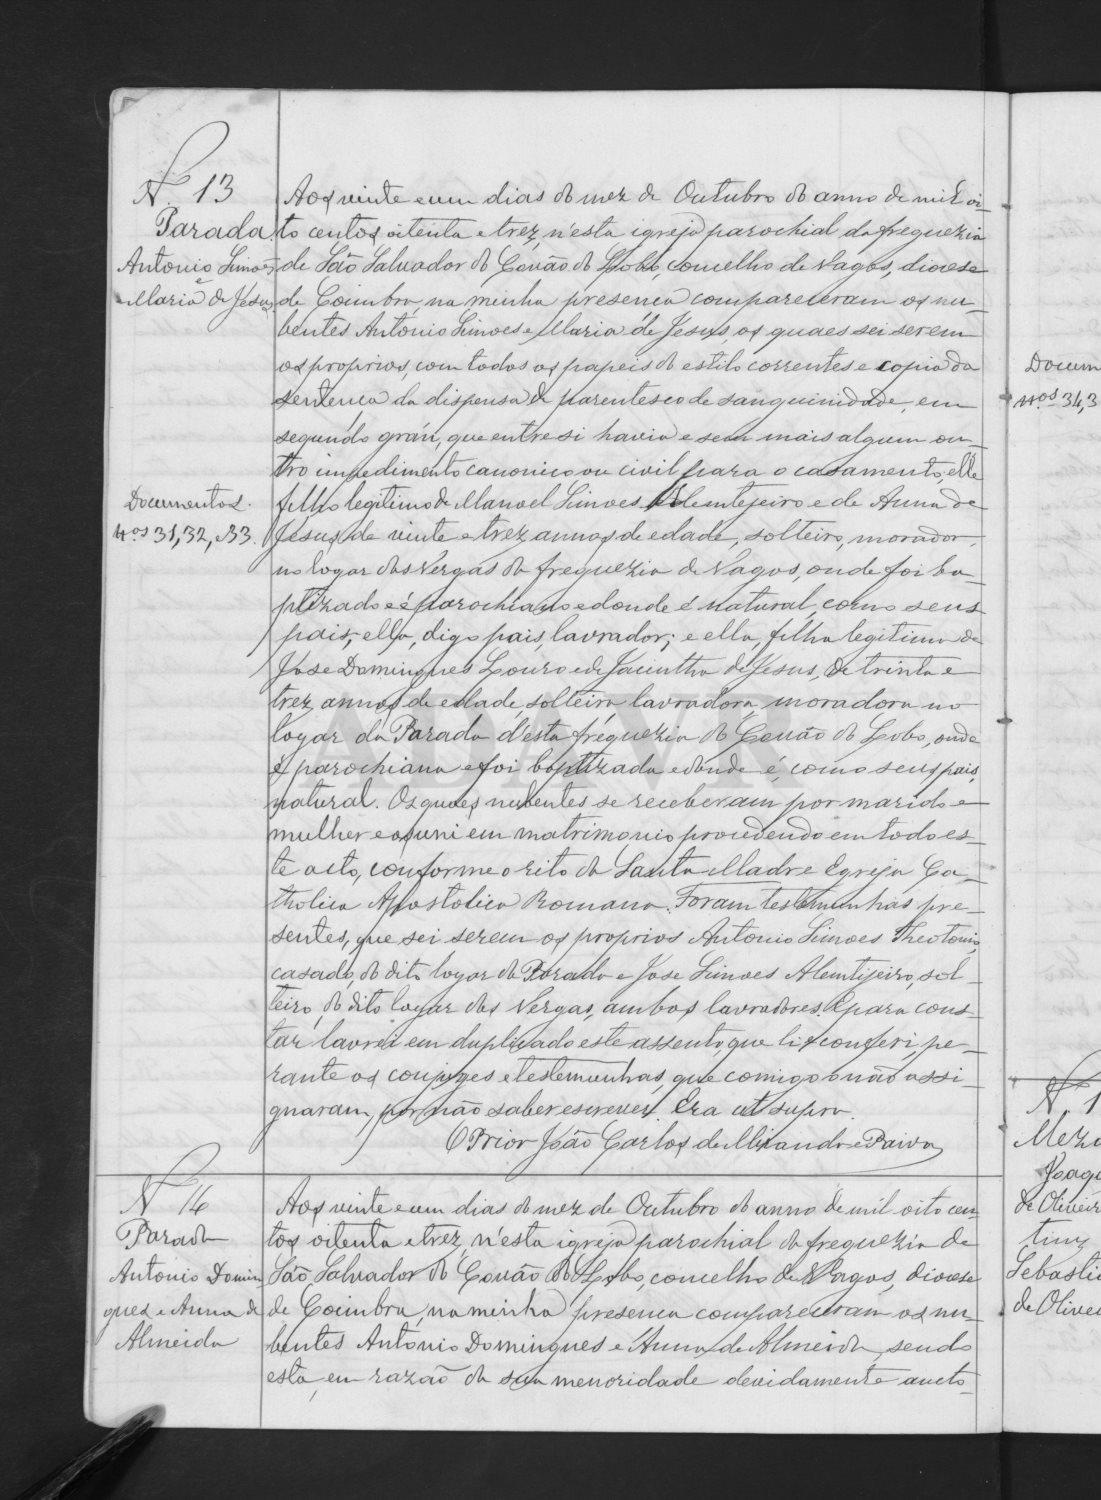 N.º 13
Parada
Antonio Simões
e
Maria de Jesus
Documentos
Nos 31, 32, e 33.
Aos vinte e um dias do mez de Outubro do anno de mil oi-
to centos oitenta e trez, n'esta igreja parochial da freguezia
de São Salvador do Covão do Lobo, concelho de Vagos, diocese
de Coimbra, na minha presença compareceram os nu-
bentes Antonio Simoes e Maria de Jesus, os quaes sei serem
os proprios, com todos os papeis do estilo correntes e copia da
sentença da dispensa de parentesco de sanguinidade, em
segundo gráu, que entre si havia e sem mais algum ou-
tro impedimento canonico ou civil para o casamento, elle
filho legitimo de Manoel Simoes Alemtejeiro e de Anna de
Jesus, de vinte e trez annos de edade, solteiro, morador,
no logar das Vergas da freguezia de Vagos, onde foi ba-
ptizado e é parochiano e donde é natural, como seus
pais, ella, digo pais, lavrador; e ella, filha legitima de
José Domingues Louro e de Jacintha de Jesus, de trinta e
trez annos de edade, solteira lavradora, moradora no
logar da Parada d'esta freguezia do Covão do Lobo, onde
é parochiana e foi baptizada e donde é, como seus pais,
natural. Os quaes nubentes se receberam por marido e
mulher e os uni em matrimonio procedendo em todo es-
te acto, conforme o rito da Santa Madre Egreja Ca-
tholica Apostolica Romana. Foram testemunhas pre-
sentes, que sei serem os proprios Antonio Simoes Theotonio,
casado, do dito logar da Parada e Jose Simoes Alemtijeiro, sol-
teiro, do dito logar das Vergas, ambos lavradores. E para cons-
tar lavrei em duplicado este assento, que li e conferi, pe-
rante os conjuges e testemunhas, que comigo o não assi-
gnaram, por não saber escrever. Era ut supra.
O Prior João Carlos de Miranda e Paiva
N.º 14
Parada
Antonio Domin
gues e Anna de
Almeida
Aos vinte e um dias do mez de Outubro do anno de mil oito cen-
tos oitenta e trez, n'esta igreja parochial da freguezia de
São Salvador do Covão do Lobo, concelho de Vagos, diocese
de Coimbra, na minha presença compareceram os nu-
bentes Antonio Domingues e Anna de Almeida, sendo
esta, em razão da sua menoridade devidamente aucto-
Docum
Nos 34, 3
N.º 1
Joaqu
de Oliveir
Sebasti
de Olivei